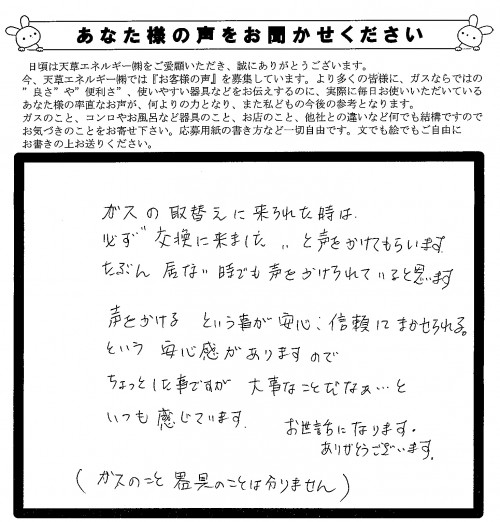 あなた様の声をお聞かせください
日頃は天草エネルギー㈱をご愛顧いただき、誠にありがとうございます。
今、天草エネルギー㈱では『お客様の声』を募集しています。より多くの皆様に、ガスならではの
”良さ”や”便利さ”、使いやすい器具などをお伝えするのに、実際に毎日お使いいただいている
あなた様の率直なお声が、何よりの力となり、また私どもの今後の参考となります。
ガスのこと、コンロやお風呂など器具のこと、お店のこと、他社との違いなど何でも結構ですので
お気づきのことをお寄せ下さい。応募用紙の書き方など一切自由です。文でも絵でもご自由に
お書きの上お送りください。
ガスの取替えに来られた時は
必ず”交換に来ました〃と声をかけてもらいます
たぶん 居ない時でも声をかけられていると思います
声をかける という事が安心;信頼にまかせられる。
という 安心感がありますので
ちょっとした事ですが 大事なことだなぁ…と
いつも感じています.
お世話になります.
ありがとうございます.
(ガスのこと 器具のことは分りません)